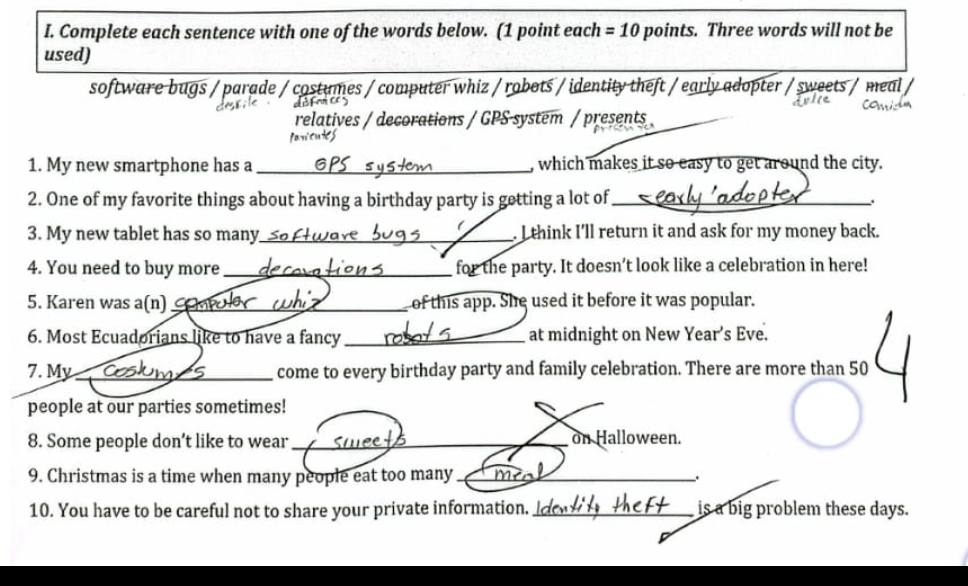 I. Complete each sentence with one of the words below. (1 point each = 10 points. Three words will not be
used)
software bugs / parade / costumes / computer whiz / robots / identity theft / early adopter / sweets / meal /
desfile. disfraces dulce comida
relatives / decorations / GPS system / presents
parientes
1. My new smartphone has a GPS system, which makes it so easy to get around the city.
2. One of my favorite things about having a birthday party is getting a lot of early adopter.
3. My new tablet has so many software bugs. I think I'll return it and ask for my money back.
4. You need to buy more decorations for the party. It doesn't look like a celebration in here!
5. Karen was a(n) computer whiz of this app. She used it before it was popular.
6. Most Ecuadorians like to have a fancy robots at midnight on New Year's Eve.
7. My costumes come to every birthday party and family celebration. There are more than 50
4
people at our parties sometimes!
8. Some people don't like to wear sweets on Halloween.
9. Christmas is a time when many people eat too many meal.
10. You have to be careful not to share your private information. Identity theft is a big problem these days.